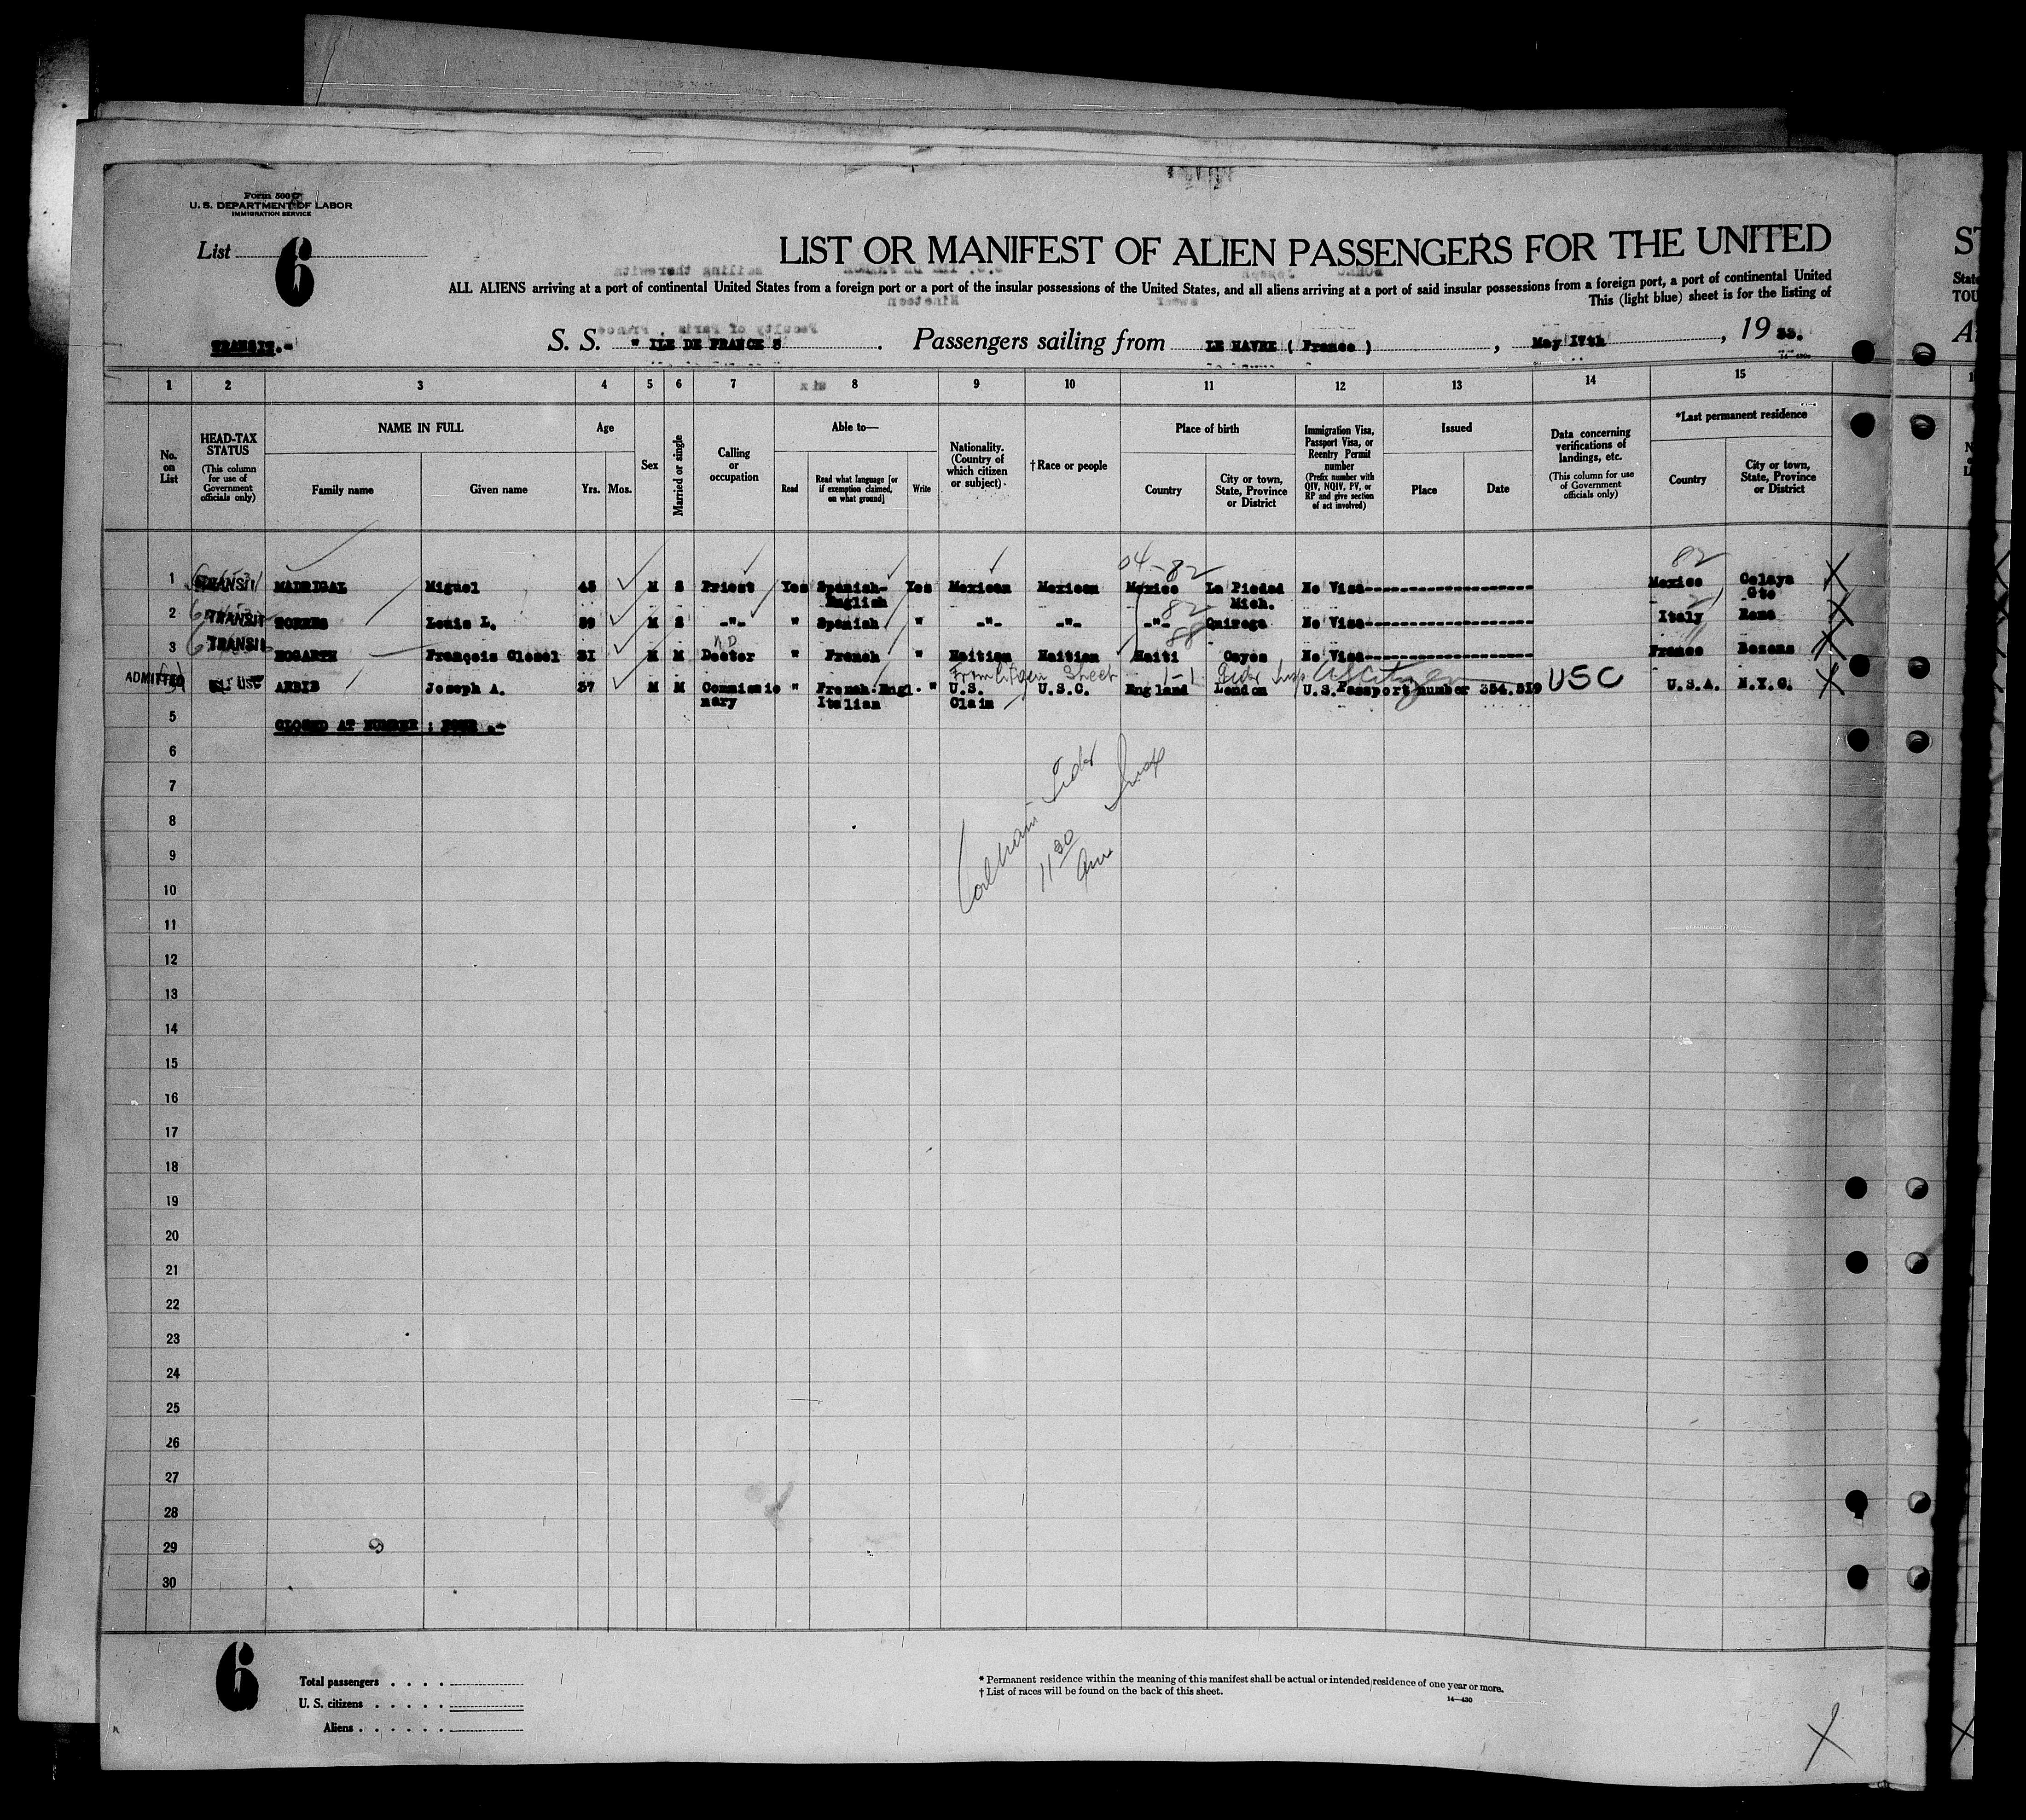 Form 500
U. S. DEPARTMENT OF LABOR
IMMIGRATION SERVICE
List 6
LIST OR MANIFEST OF ALIEN PASSENGERS FOR THE UNITED
ALL ALIENS arriving at a port of continental United States from a foreign port or a port of the insular possessions of the United States, and all aliens arriving at a port of said insular possessions from a foreign port, a port of continental United
This (light blue) sheet is for the listing of
TRANSIT.- S. S. " ILE DE FRANCE " . Passengers sailing from LE HAVRE ( France ) , May 17th , 19 33.
1 2 3 4 5 6 7 8 9 10 11 12 13 14 15
No. on List
HEAD-TAX STATUS
(This column for use of Government officials only)
NAME IN FULL
Family name Given name
Age
Yrs. Mos.
Sex
Married or single
Calling or occupation
Able to—
Read Read what language [or if exemption claimed, on what ground] Write
Nationality. (Country of which citizen or subject)
†Race or people
Place of birth
Country City or town, State, Province or District
Immigration Visa, Passport Visa, or Reentry Permit number
(Prefix number with QIV, NQIV, PV, or RP and give section of act involved)
Issued
Place Date
Data concerning verifications of landings, etc.
(This column for use of Government officials only)
*Last permanent residence
Country City or town, State, Province or District
04-82 82
1 TRANSIT MADRIGAL Miguel 45 M S Priest Yes Spanish- Yes Mexican Mexican Mexico La Piedad No Visa Mexico Celaya
English Mich. Gto
82
2 TRANSIT Louis L. 39 M S -"- " Spanish " -"- -"- -"- Quiroga No Visa Italy Roma
ND 88
3 TRANSIT HOGARTH François 31 M M Doctor " French " Haitian Haitian Haiti Cayes No Visa France
From Citizen Sheet 1-1
ADMITTED USC ARBIB Joseph A. 37 M M Commissio " French.Engl. " U.S. U.S.C. England London U.S.Passport number 354.519 USC U.S.A. N.Y.C.
nary Italian Claim
5 CLOSED AT NUMBER : FOUR .-
6
7
8
9
11 30
am
10
11
12
13
14
15
16
17
18
19
20
21
22
23
24
25
26
27
28
29
30
6
Total passengers
U. S. citizens
Aliens
* Permanent residence within the meaning of this manifest shall be actual or intended residence of one year or more.
† List of races will be found on the back of this sheet.
14—430